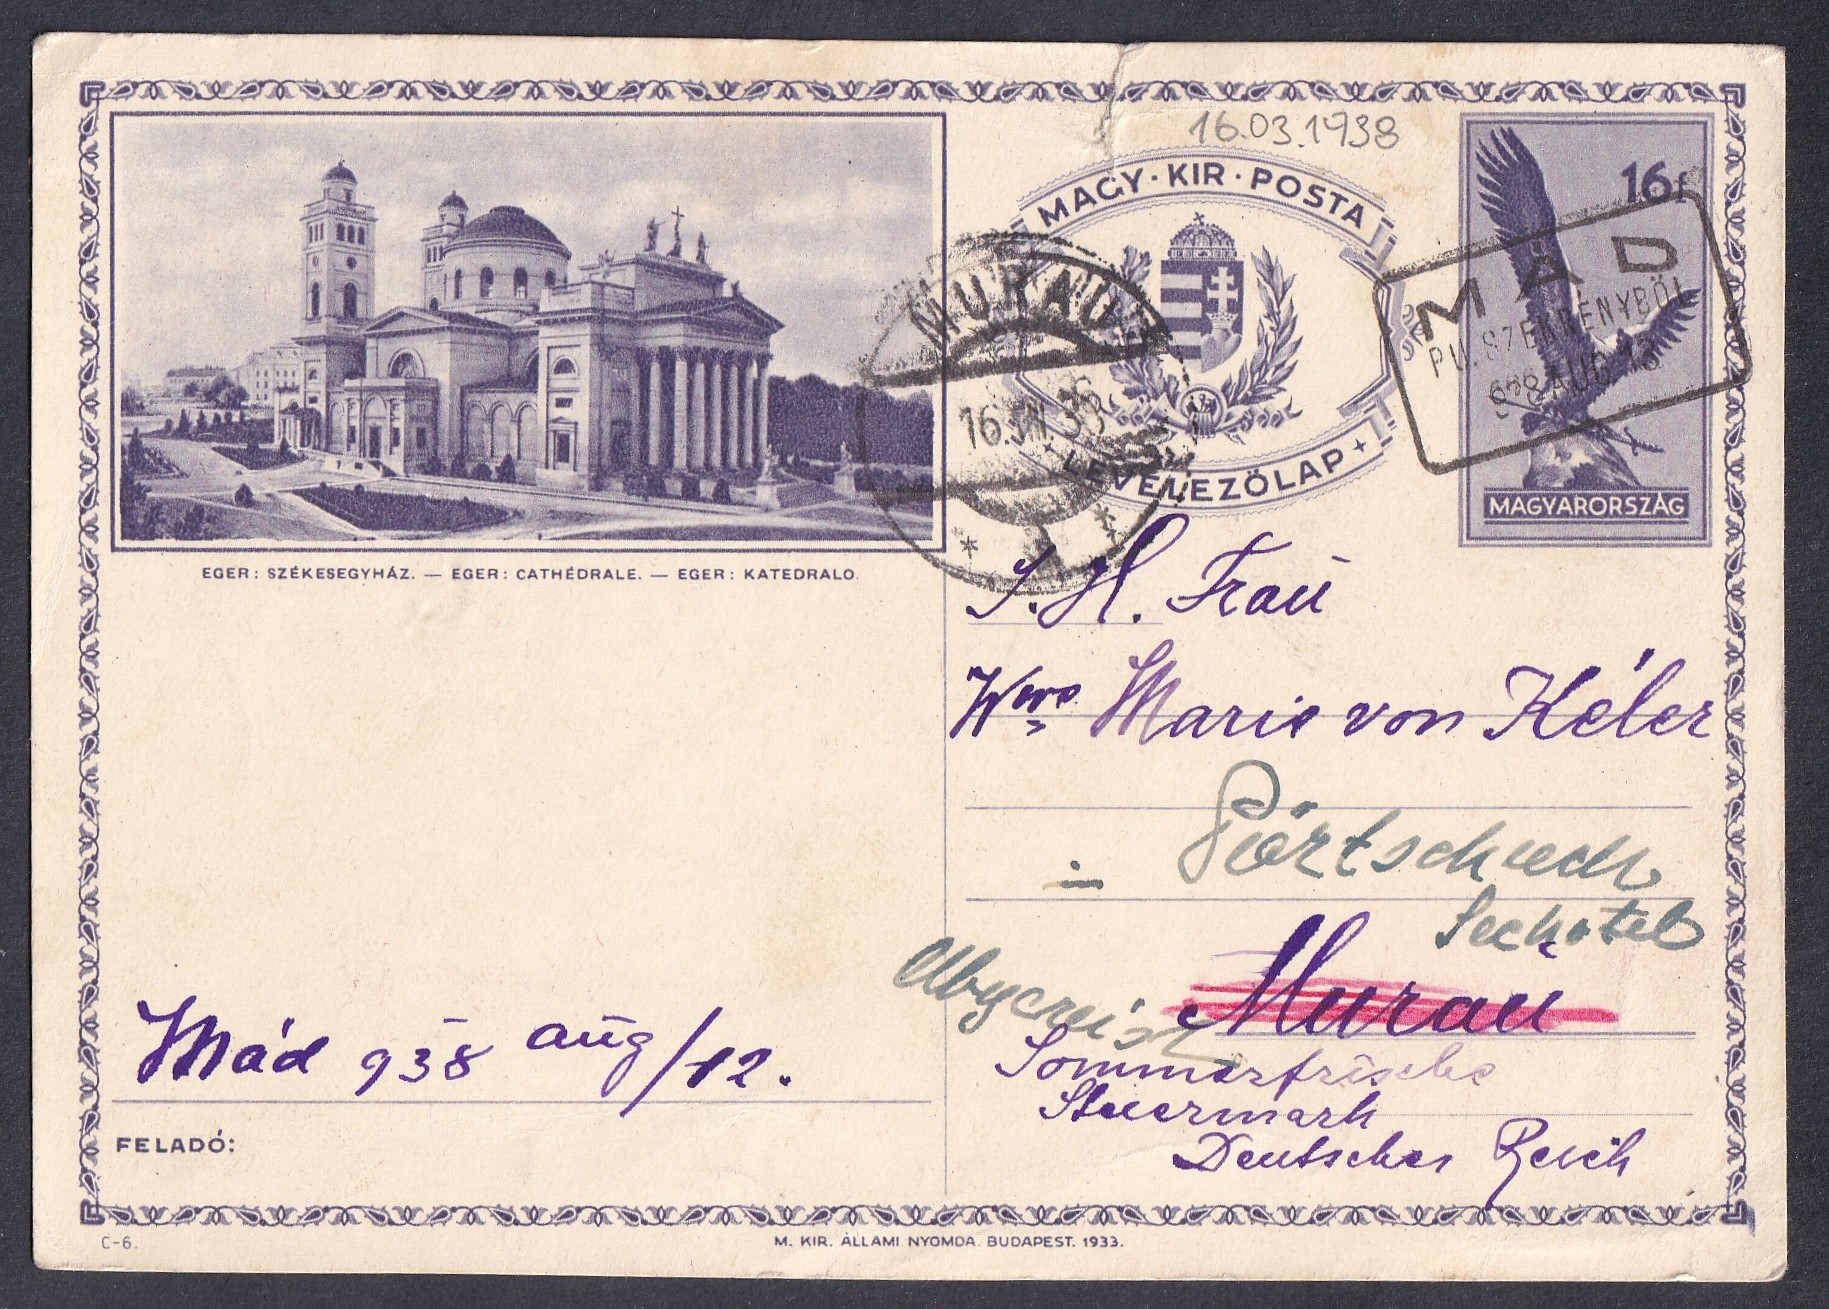 16.03.1938
MAGY·KIR·POSTA
LEVELEZŐLAP
16f
MAGYARORSZÁG
MÁD
PU. SZEKRÉNYBŐL
938 AUG 13
MURAU
16.VIII.38
EGER: SZÉKESEGYHÁZ. — EGER: CATHÉDRALE. — EGER: KATEDRALO.
I. H. Fraŭ
Wwe Marie von Kéler
Pörtschach
Seehotel
Abgereist
Muraŭ
Sommerfrische
Steiermark
Deutsches Reich
Mád 938 aŭg/12.
FELADÓ:
C-6.
M. KIR. ÁLLAMI NYOMDA. BUDAPEST. 1933.